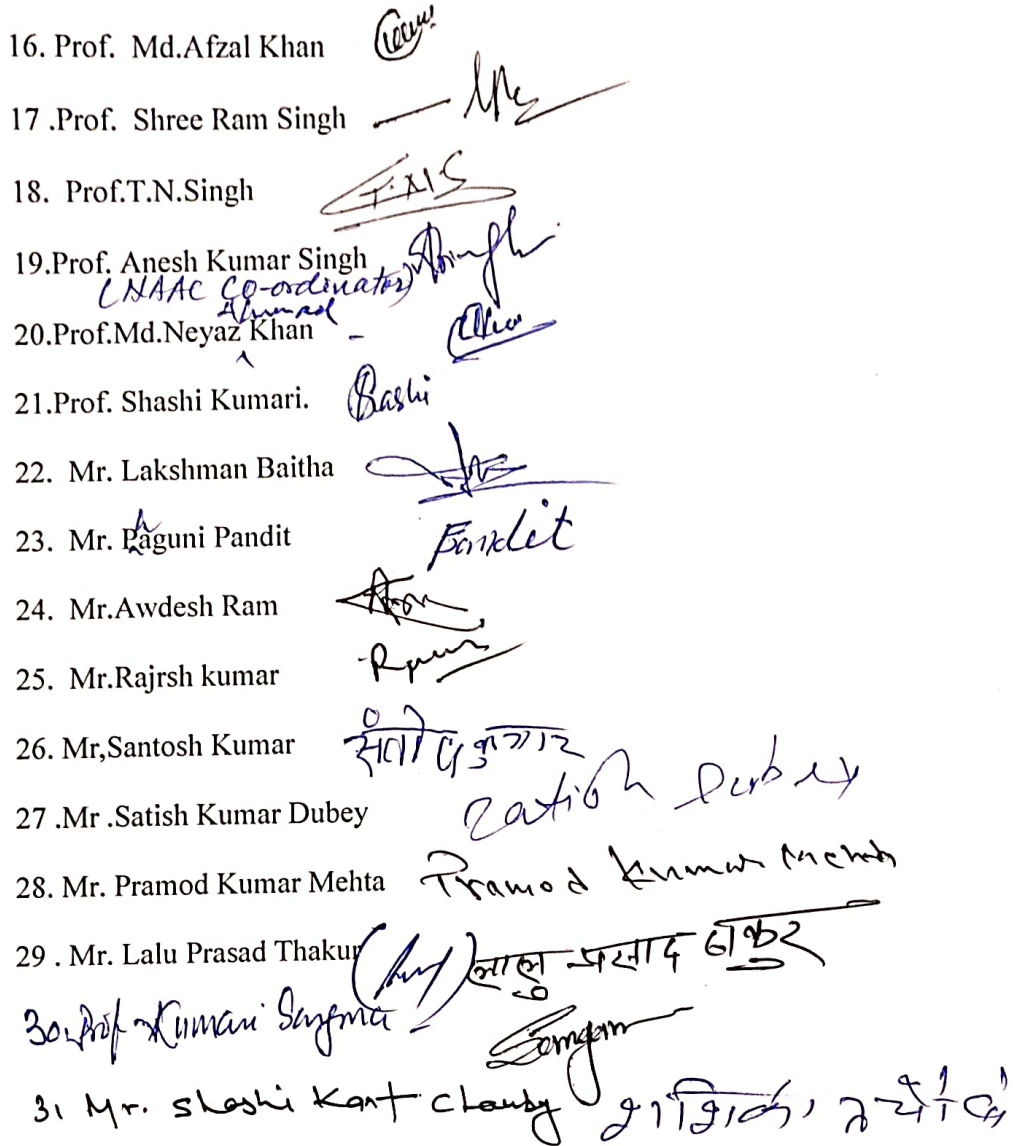 16. Prof. Md.Afzal Khan
17 .Prof. Shree Ram Singh
18. Prof.T.N.Singh
19.Prof. Anesh Kumar Singh Singh
(NAAC Co-ordinator)
Ahmad
20.Prof.Md.Neyaz Khan -
21.Prof. Shashi Kumari. Shashi
22. Mr. Lakshman Baitha
h
23. Mr. Paguni Pandit Pandit
24. Mr.Awdesh Ram
25. Mr.Rajrsh kumar
26. Mr,Santosh Kumar संतोष कुमार
27 .Mr .Satish Kumar Dubey Satish Dubey
28. Mr. Pramod Kumar Mehta Pramod Kumar Mehta
29 . Mr. Lalu Prasad Thakur लालु प्रसाद ठाकुर
30. Prof. Kumari Sangma
31 Mr. Shashi Kant Chauby